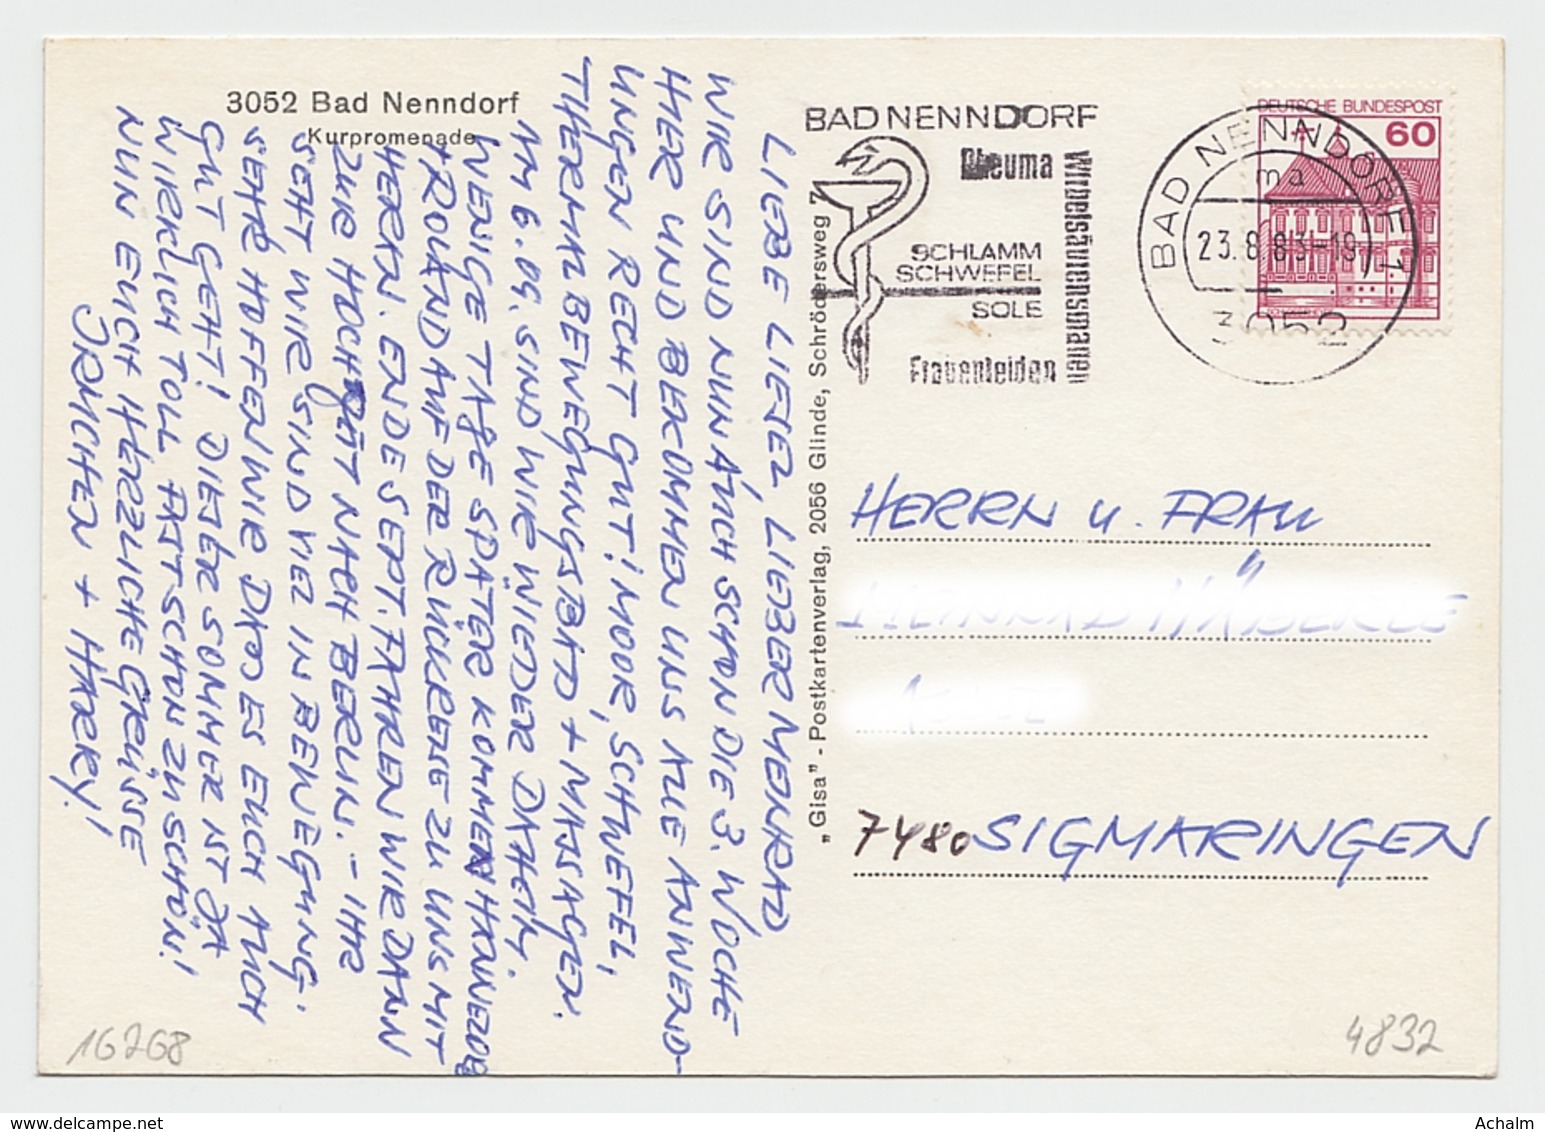 3052 Bad Nenndorf
Kurpromenade
LIEBE LIESEL, LIEBER MEINRAD
WIR SIND NUN AUCH SCHON DIE 3. WOCHE
HIER UND BEKOMMEN UNS ALLE ANWEND-
UNGEN RECHT GUT! MOOR, SCHWEFEL,
THERMALBEWEGUNGSBAD + MASSAGEN.
AM 6.09. SIND WIR WIEDER DAHEIM.
WENIGE TAGE SPÄTER KOMMEN HANNELORE
+ ROLAND AUF DER RÜCKREISE ZU UNS MIT
HERAN. ENDE SEPT. FAHREN WIR DANN
ZUR HOCHZEIT NACH BERLIN. - IHR
SEHT, WIR SIND VIEL IN BEWEGUNG.
SEHR HOFFEN WIR DASS ES EUCH AUCH
GUT GEHT! DIESER SOMMER IST JA
WIRKLICH TOLL FAST SCHON ZU SCHÖN!
NUN EUCH HERZLICHE GRÜSSE
IRMCHEN + HARRY!
„Gisa” - Postkartenverlag, 2056 Glinde, Schrödersweg 7
BAD NENNDORF
Rheuma
Wirbelsäulenschäden
SCHLAMM
SCHWEFEL
SOLE
Frauenleiden
DEUTSCHE BUNDESPOST
60
BAD NENNDORF 1
ma
23.8.83-19
3052
HERRN u. FRAU
MEINRAD HÄBERLE
7480 SIGMARINGEN
16768
4832
delcampe.net
Achalm